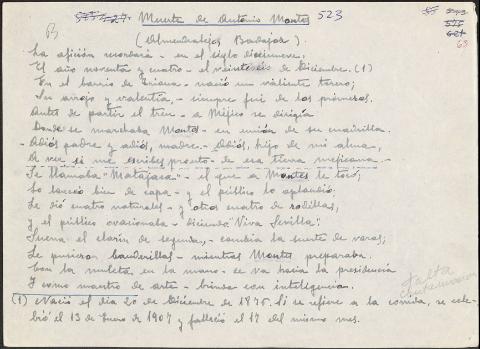 Muerte de Antonio Montes 523
(Almendralejo, Badajoz).
La afición recordará - en el siglo diecinueve,
El año noventa y cuatro - el veintiseis de Diciembre. (1)
En el barrio de Triana - nació un valiente torero;
Su arrojo y valentía, - siempre fué de los primeros.
Antes de partir el tren - a Méjico se dirigía
Donde se marchaba Montes - en unión de su cuadrilla.
- Adiós padre y adiós, madre. - Adiós, hijo de mi alma,
A ver si me escribes pronto - de esa tierra mejicana. -
Se llamaba "Matajaca" - el que a Montes le tocó;
Lo toreó bien de capa - y el público lo aplaudió.
Le dió cuatro naturales - y otros cuatro de rodillas,
Y el público ovacionaba - diciendo "Viva Sevilla".
Suena el clarín de segunda, - cambia la suerte de varas;
Le pusieron banderillas - mientras Montes preparaba.
Con la muleta en la mano - se va hacia la presidencia
Y como maestro de arte - brinda con inteligencia.
falta
(1) Nació el día 20 de Diciembre de 1876. Si se refiere a la corrida, se cele-
bró el 13 de Enero de 1907 y falleció el 17 del mismo mes.
63